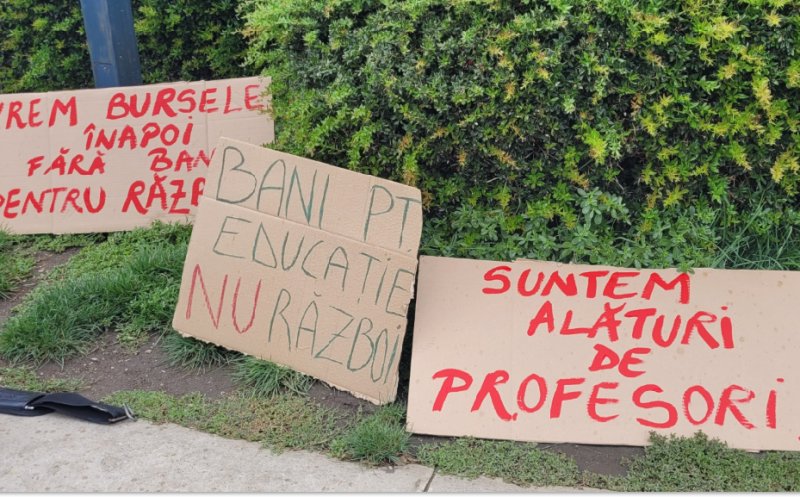 VREM BURSELE
ÎNAPOI
FĂRĂ BANI
PENTRU RĂZB
BANI PT
EDUCAȚIE
NU RĂZBOI
SUNTEM
ALĂTURI
DE
PROFESORI